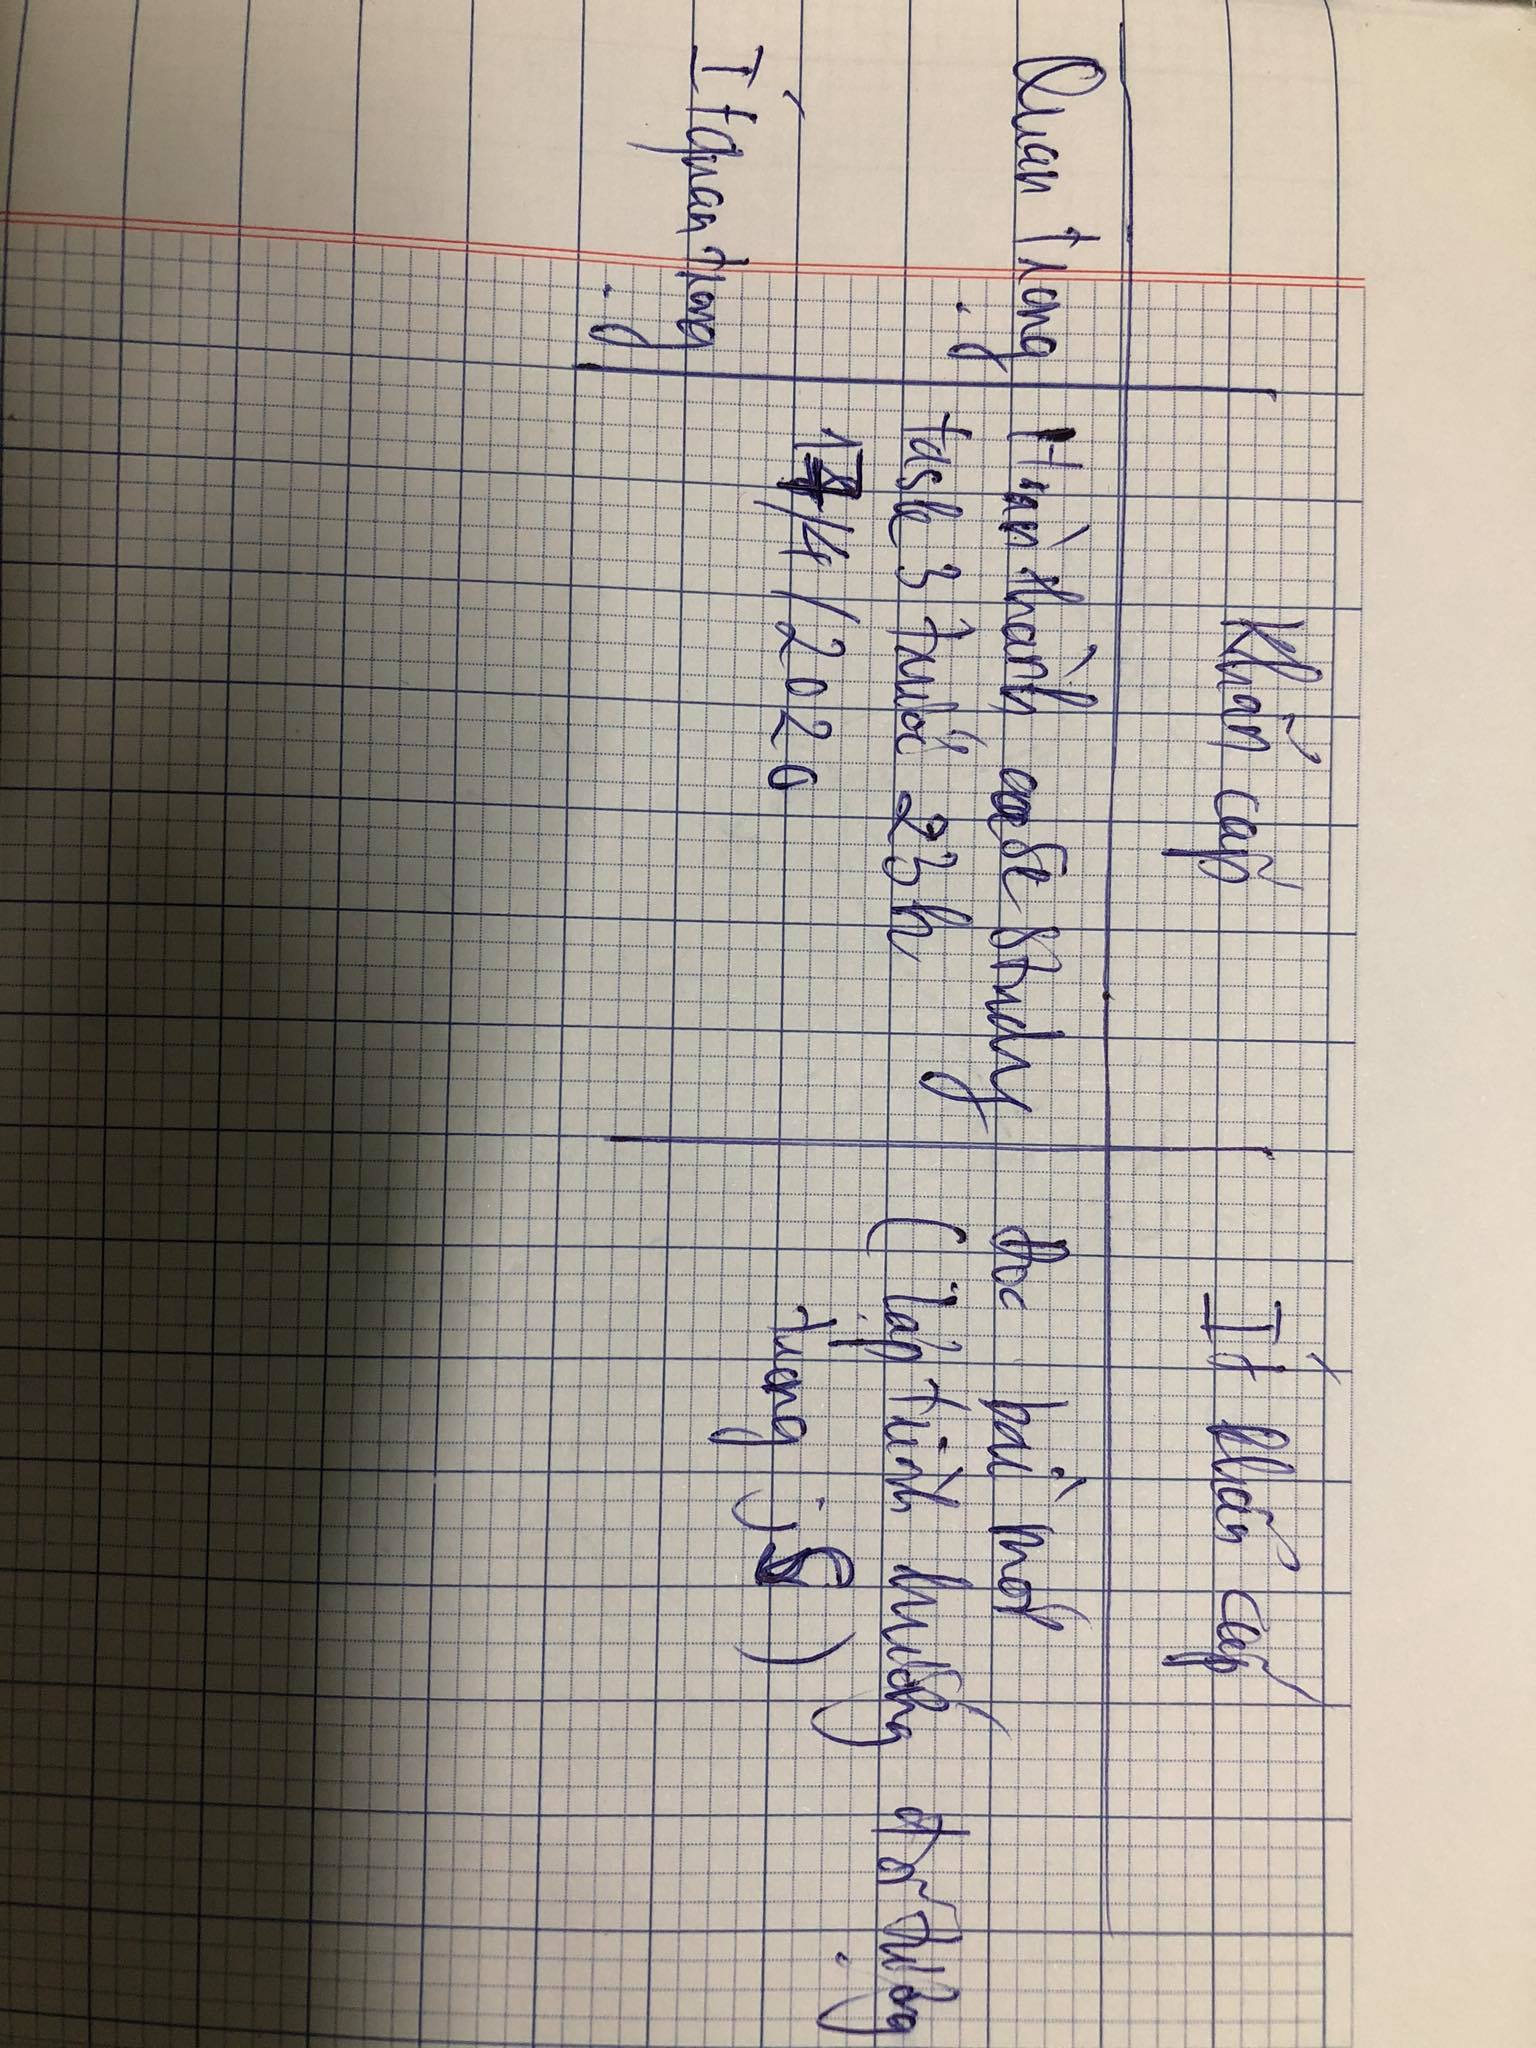 Khẩn cấp
Ít khẩn cấp
Quan trọng
Hoàn thành case study
task 3 trước 23h
17/4/2020
Đọc bài mới
(lập trình hướng đối tượng
trong js)
Ít quan trọng